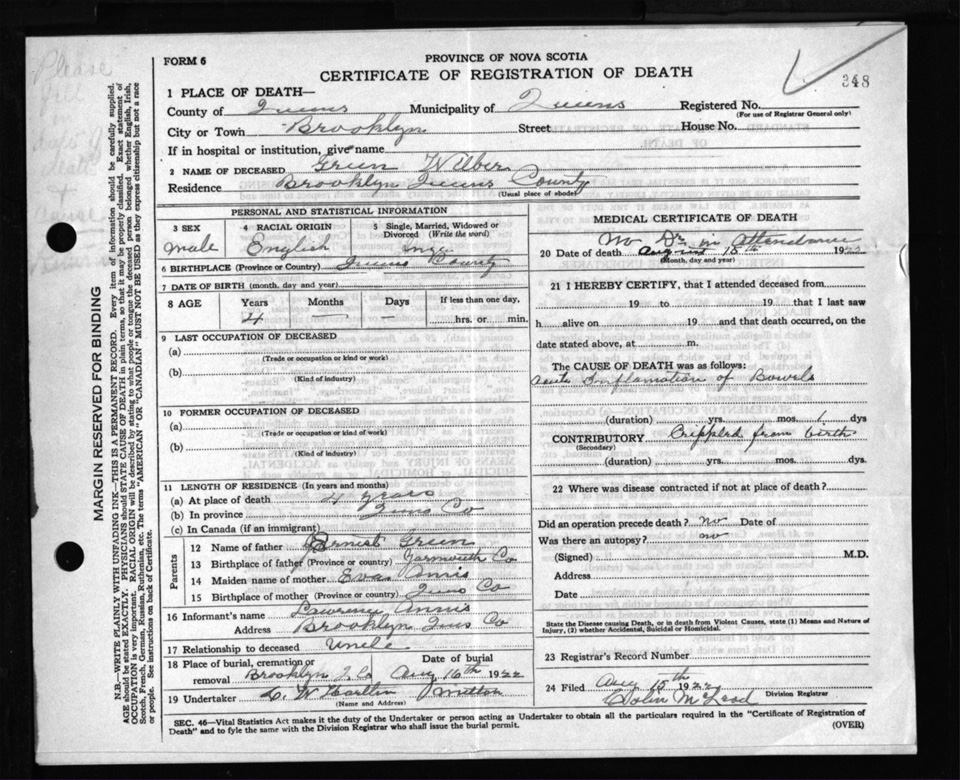 Please
fill
in
days of
death
+
cause
348
MARGIN RESERVED FOR BINDING
N.B.—WRITE PLAINLY WITH UNFADING INK—THIS IS A PERMANENT RECORD. Every item of information should be carefully supplied.
AGE should be stated EXACTLY. PHYSICIANS should STATE CAUSE OF DEATH in plain terms, so that it may be properly classified. Exact statement of
OCCUPATION is very important. RACIAL ORIGIN will be described by stating to what people or tongue the deceased person belonged whether English, Irish,
Scotch, French, German, Russian, Ruthenian, etc. The terms "AMERICAN" OR "CANADIAN" MUST NOT BE USED as they express citizenship but not a race
or people. See instructions on back of Certificate.
FORM 6
PROVINCE OF NOVA SCOTIA
CERTIFICATE OF REGISTRATION OF DEATH
1 PLACE OF DEATH—
County of Queens Municipality of Queens Registered No.
(For use of Registrar General only)
City or Town Brooklyn Street House No.
If in hospital or institution, give name
2 NAME OF DECEASED Green Wilber
Residence Brooklyn Queens County
(Usual place of abode)
PERSONAL AND STATISTICAL INFORMATION
3 SEX 4 RACIAL ORIGIN 5 Single, Married, Widowed or
Divorced (Write the word)
male English
6 BIRTHPLACE (Province or Country) Queens County
7 DATE OF BIRTH (month, day and year)
8 AGE Years Months Days If less than one day,
4 — — hrs. or min.
9 LAST OCCUPATION OF DECEASED
(a)
(Trade or occupation or kind or work)
(b)
(Kind of industry)
10 FORMER OCCUPATION OF DECEASED
(a)
(Trade or occupation or kind of work)
(b)
(Kind of industry)
11 LENGTH OF RESIDENCE (In years and months)
(a) At place of death 4 years
(b) In province Queens Co
(c) In Canada (if an immigrant)
Parents
12 Name of father Ernest Green
13 Birthplace of father (Province or country) Yarmouth Co
14 Maiden name of mother Eva Annis
15 Birthplace of mother (Province or country) Co
16 Informant's name Lawrence Annis
Address Brooklyn Co
17 Relationship to deceased Uncle
18 Place of burial, cremation or Date of burial
removal Brooklyn Q Co Aug 16th 1922
19 Undertaker
(Name and Address)
MEDICAL CERTIFICATE OF DEATH
No Dr in Attendance
20 Date of death August 15th 1922
(Month, day and year)
21 I HEREBY CERTIFY, that I attended deceased from
19 to 19 that I last saw
h alive on 19 and that death occurred, on the
date stated above, at m.
The CAUSE OF DEATH was as follows:
Acute Inflamation of Bowels
(duration) yrs. mos. 1 dys
CONTRIBUTORY Crippled from birth
(Secondary)
(duration) yrs. mos. dys.
22 Where was disease contracted if not at place of death?
Did an operation precede death? no Date of
Was there an autopsy? no
(Signed) M.D.
Address
Date
State the Disease causing Death, or in death from Violent Causes, state (1) Means and Nature of
Injury, (2) whether Accidental, Suicidal or Homicidal.
23 Registrar's Record Number
24 Filed Aug 15th 1922
Colin McLeod Division Registrar
SEC. 46—Vital Statistics Act makes it the duty of the Undertaker or person acting as Undertaker to obtain all the particulars required in the "Certificate of Registration of
Death" and to fyle the same with the Division Registrar who shall issue the burial permit.
(OVER)